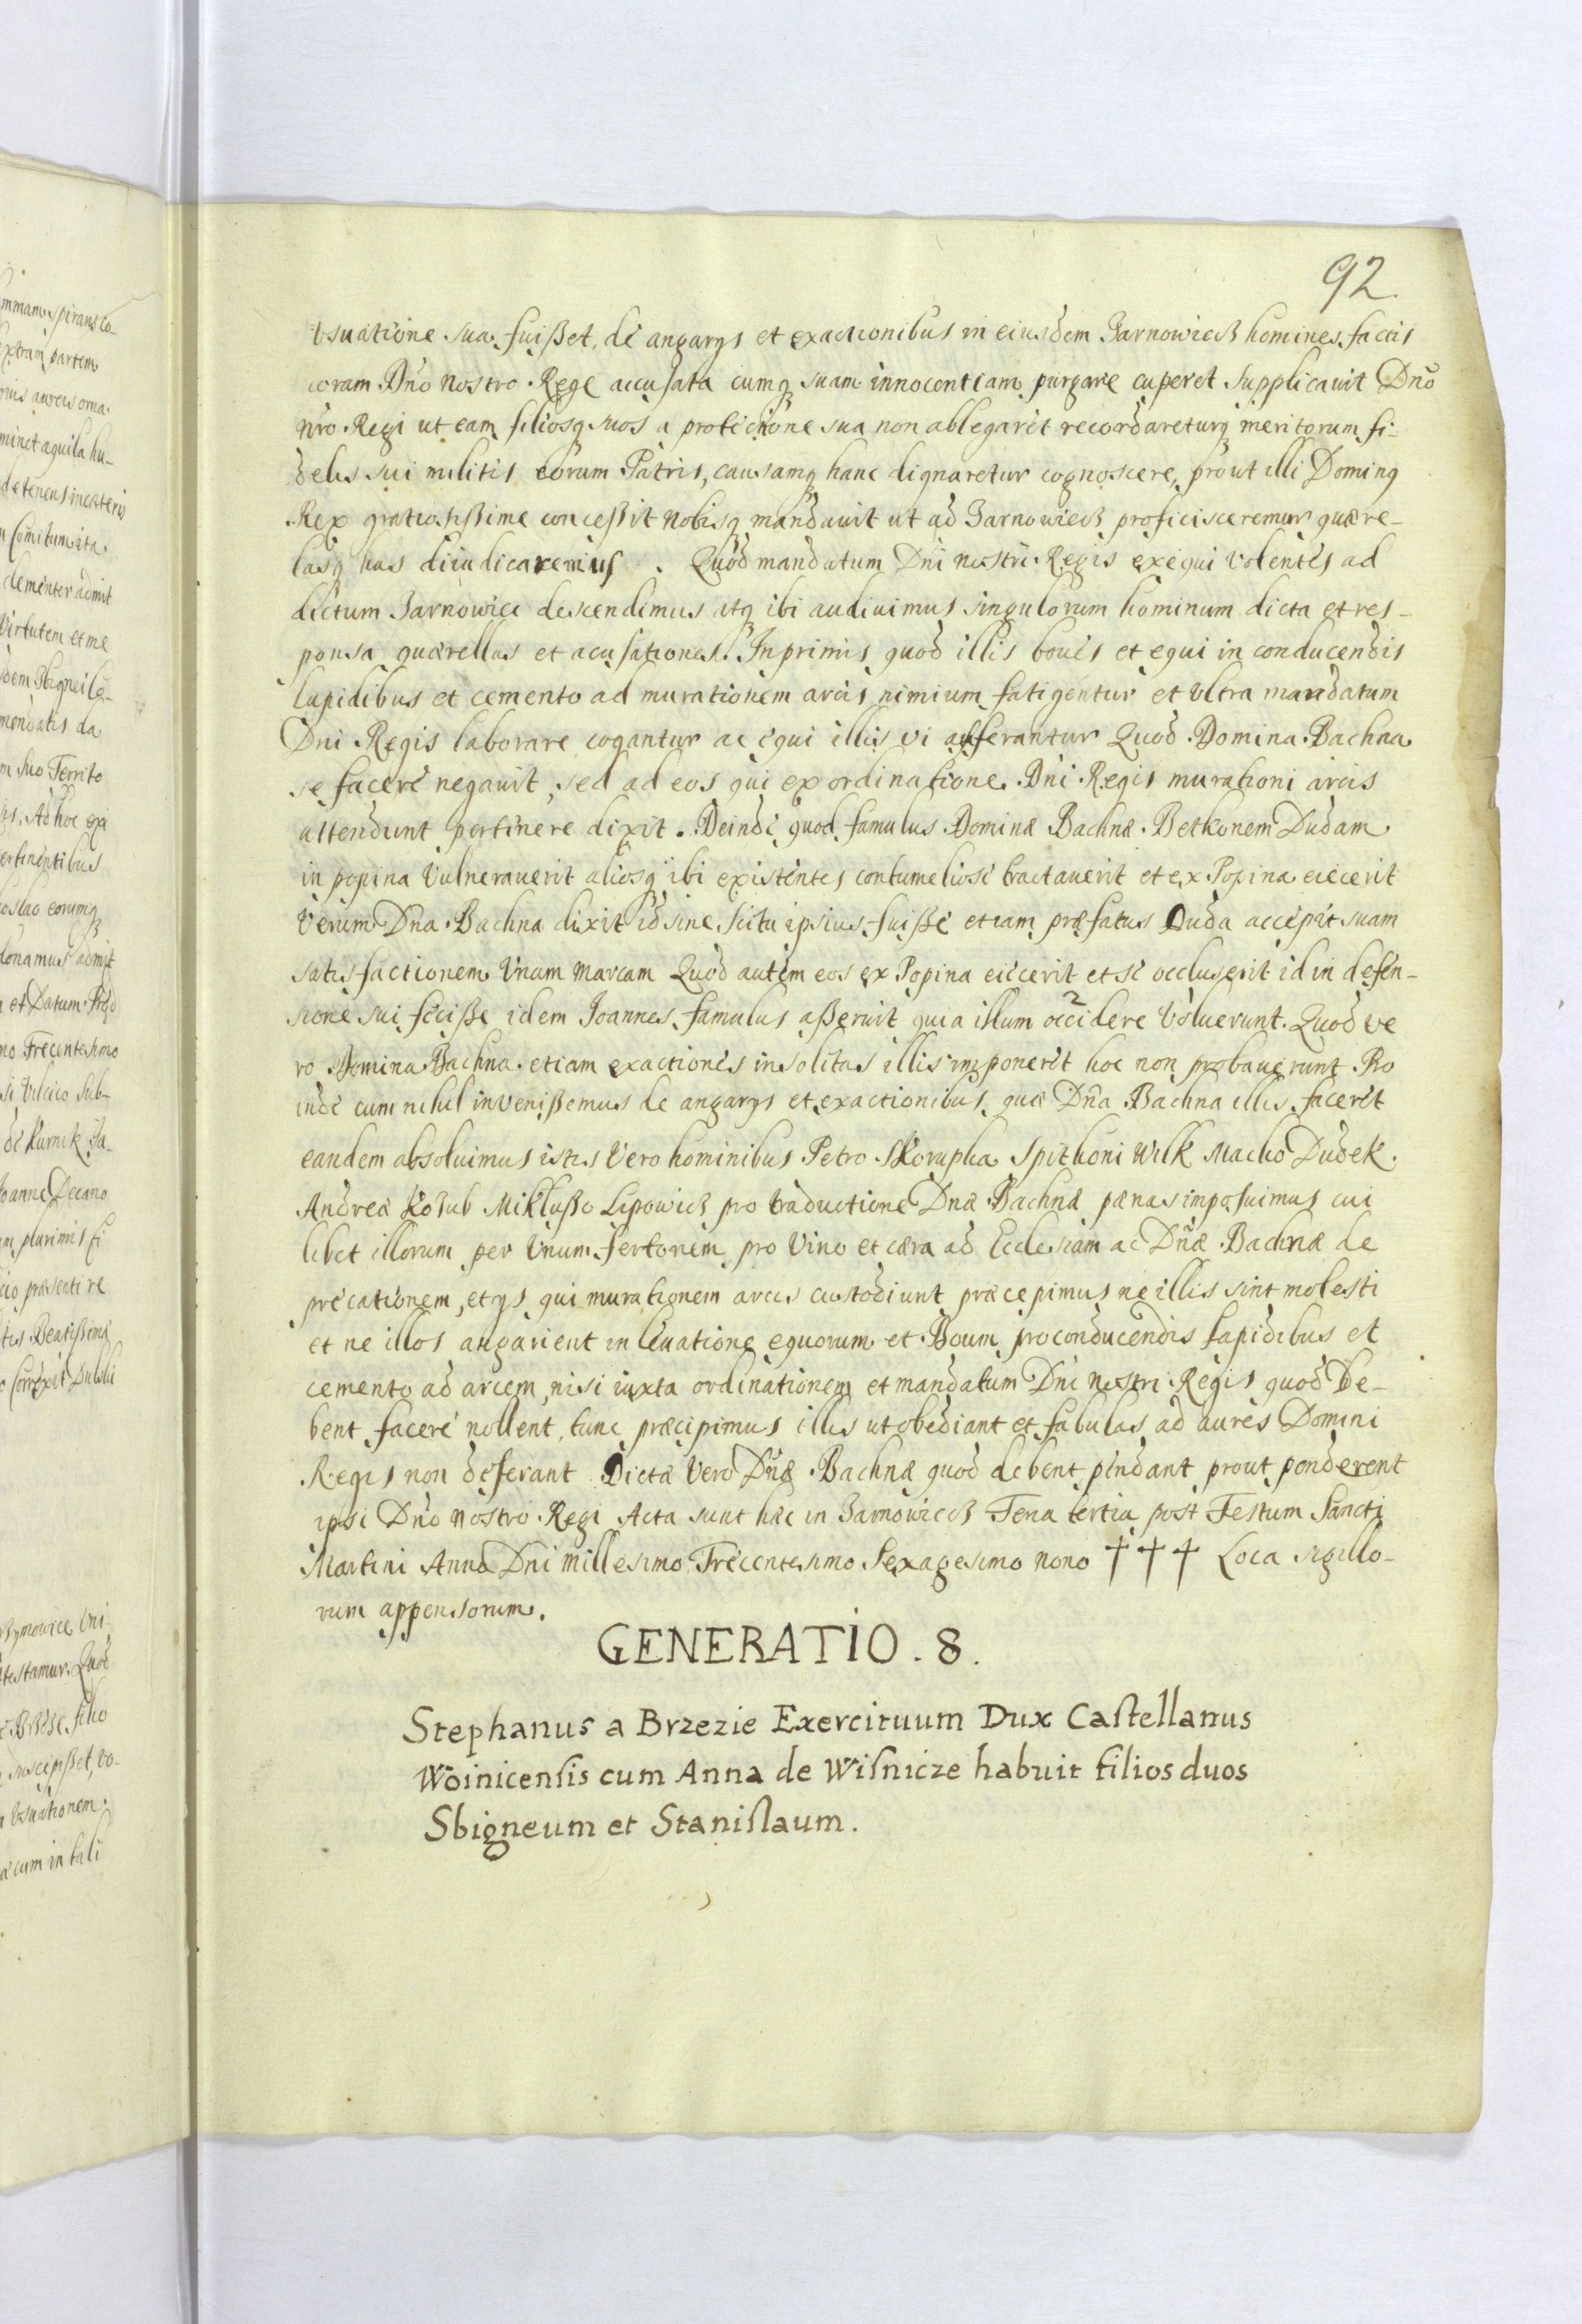 92
vsuatione sua fuißet, de angarys et exactionibus in eiusdem Zarnowiecz homines factis
coram Dño Nostro Rege accusata cumq suam innocentiam purgare cuperet Supplicauit Dño
Nro Regi ut eam filiosq suos a protectione sua non ablegaret recordareturq meritorum fi-
delis sui militis eorum Patris, causamq hanc dignaretur cognoscere, prout illi Dominq
Rex gratiosißime conceßit Nobisq mandauit ut ad Zarnowiecz proficisceremur quære-
lasq has diiudicaremus. Quod mandatum Dni nostri Regis exequi volentes ad
dictum Zarnowiec descendimus atq ibi audiuimus singulorum hominum dicta et res-
ponsa quærellas et acusationes. Inprimis quod illis boues et equi in conducendis
lapidibus et cemento ad murationem arcis nimium fatigentur et vltra mandatum
Dni Regis laborare cogantur ac equi illis vi afferantur Quod Domina Bachna
se facere negauit, sed ad eos qui ex ordinatione Dni Regis murationi arcis
attendunt pertinere dixit. Deinde quod famulus Dominæ Bachnæ Betkonem Dudam
in popina Vulnerauerit aliosq ibi existentes contumeliose tractauerit et ex Popina eiecerit
Verum Dna Bachna dixit id sine scitu ipsius fuiße etiam præfatus Duda accepit suam
satisfactionem Vnam Marcam Quod autem eos ex Popina eiecerit et se occluserit id in defen-
sione sui feciße idem Joannes famulus aßeruit quia illum occidere Voluerunt. Quod ve
ro Domina Bachna etiam exactiones insolitas illis imponeret hoc non probauerunt. Pro
inde cum nihil inuenißemus de angarys et exactionibus quæ Dña Bachna illis faceret
eandem absoluimus istis Vero hominibus Petro Skorupka Spithoni Wilk Macho Dudek
Andreæ Kozub Miklußo Lipowicz pro traductione Dnæ Bachnæ pænas imposuimus cui
libet illorum per Vnum fertonem pro Vino et cæra ad Ecclesiam ac Dñæ Bachnæ de
precationem, et ys qui murationem arcis custodiunt præcepimus ne illis sint molesti
et ne illos angarient in leuatione equorum et Boum pro conducendis lapidibus et
cemento ad arcem, nisi iuxta ordinationem et mandatum Dni Nostri Regis quod De-
bent facere nollent, tunc præcipimus illis ut obediant et fabulas ad aures Domini
Regis non deferant Dictæ Vero Dñæ Bachnæ quod debent pendant prout penderent
ipsi Dño Nostro Regi Acta sunt hæc in Zarnowiecz Feria tertia post Festum Sancti
Martini Anno Dni Millesimo Trecentesimo Sexagesimo Nono † † † Loca sigillo-
rum appensorum.
GENERATIO. 8.
Stephanus a Brzezie Exercituum Dux Castellanus
Woinicensis cum Anna de Wisnicze habuit filios duos
Sbigneum et Stanislaum.